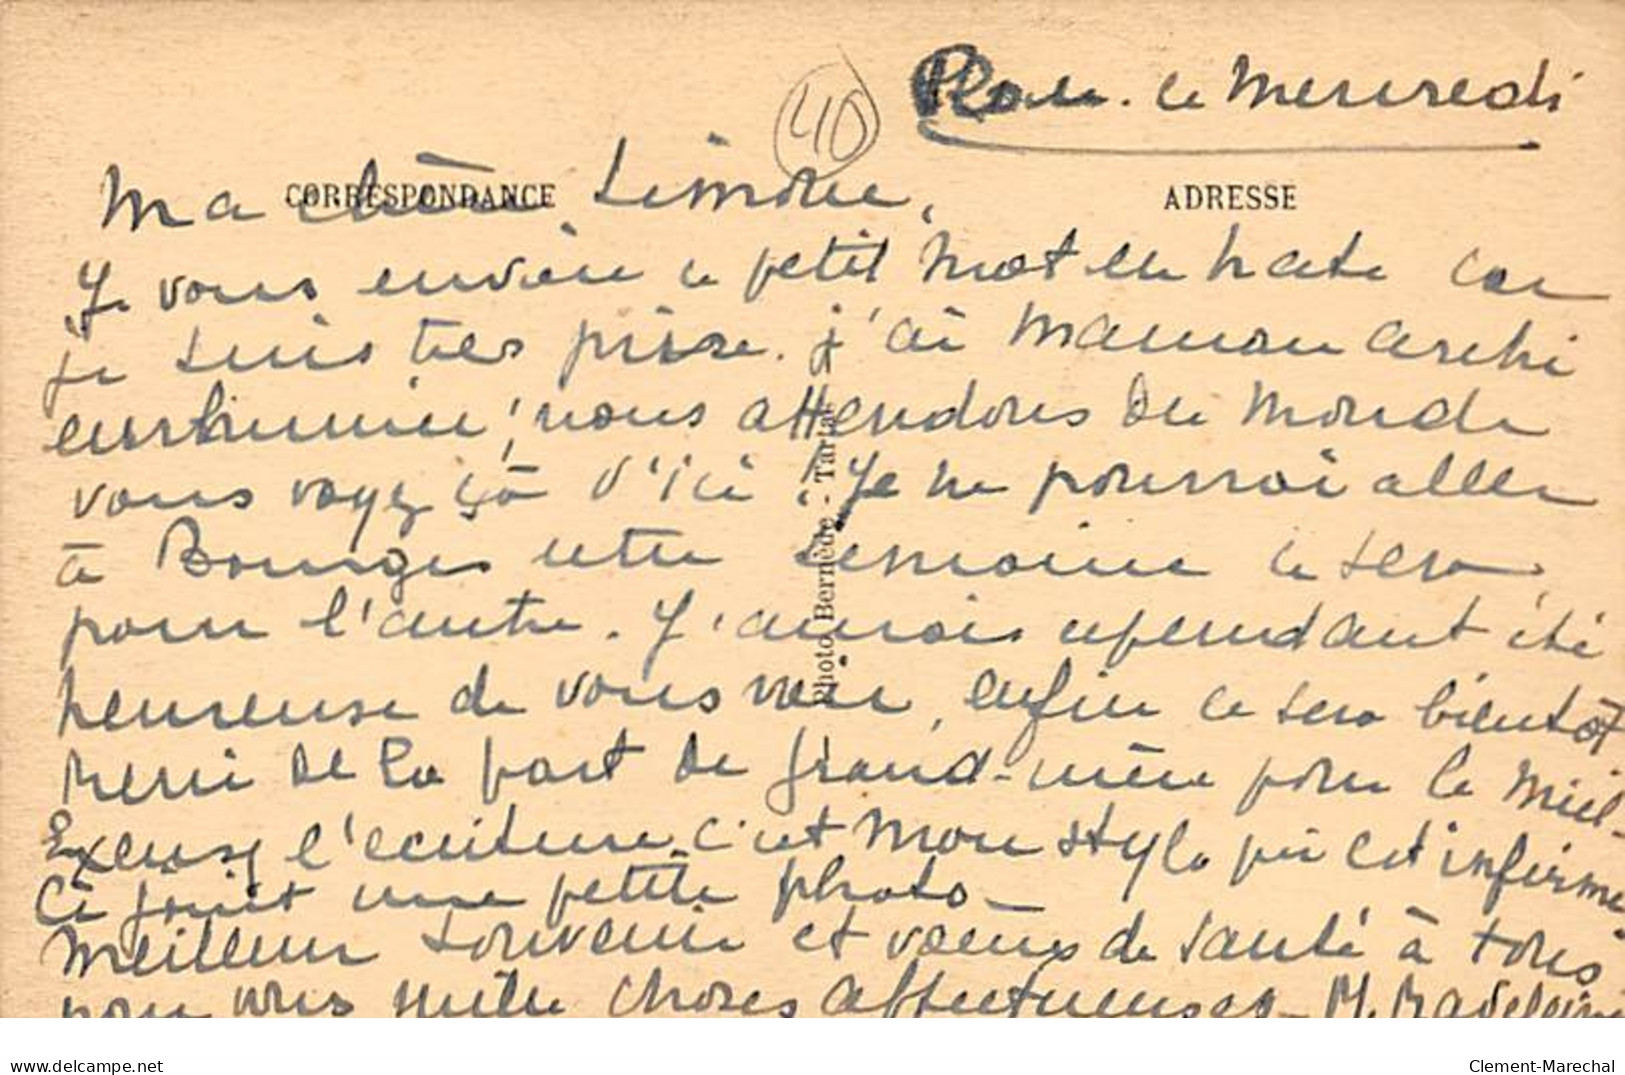 40
ce Mercredi
CORRESPONDANCE
ADRESSE
Ma chère Simone,
Je vous envoie ce petit mot en hate car
je suis très prise. j'ai Maman archi
enrhumée, nous attendons du monde
vous voyez çà d'ici ! Je ne pourrai aller
à Bourges cette semaine ce sera
pour l'autre. J'aurais cependant été
heureuse de vous voir, enfin ce sera bientôt
Merci de la part de grand-mère pour le miel-
Excusez l'ecriture c'est mon stylo qui est infirme
Ci joint une petite photo-
Meilleur souvenir et voeux de santé à tous
pour vous mille choses affectueuses- M. Madeleine
Photo Bernède - Tartas
delcampe.net
Clement-Marechal